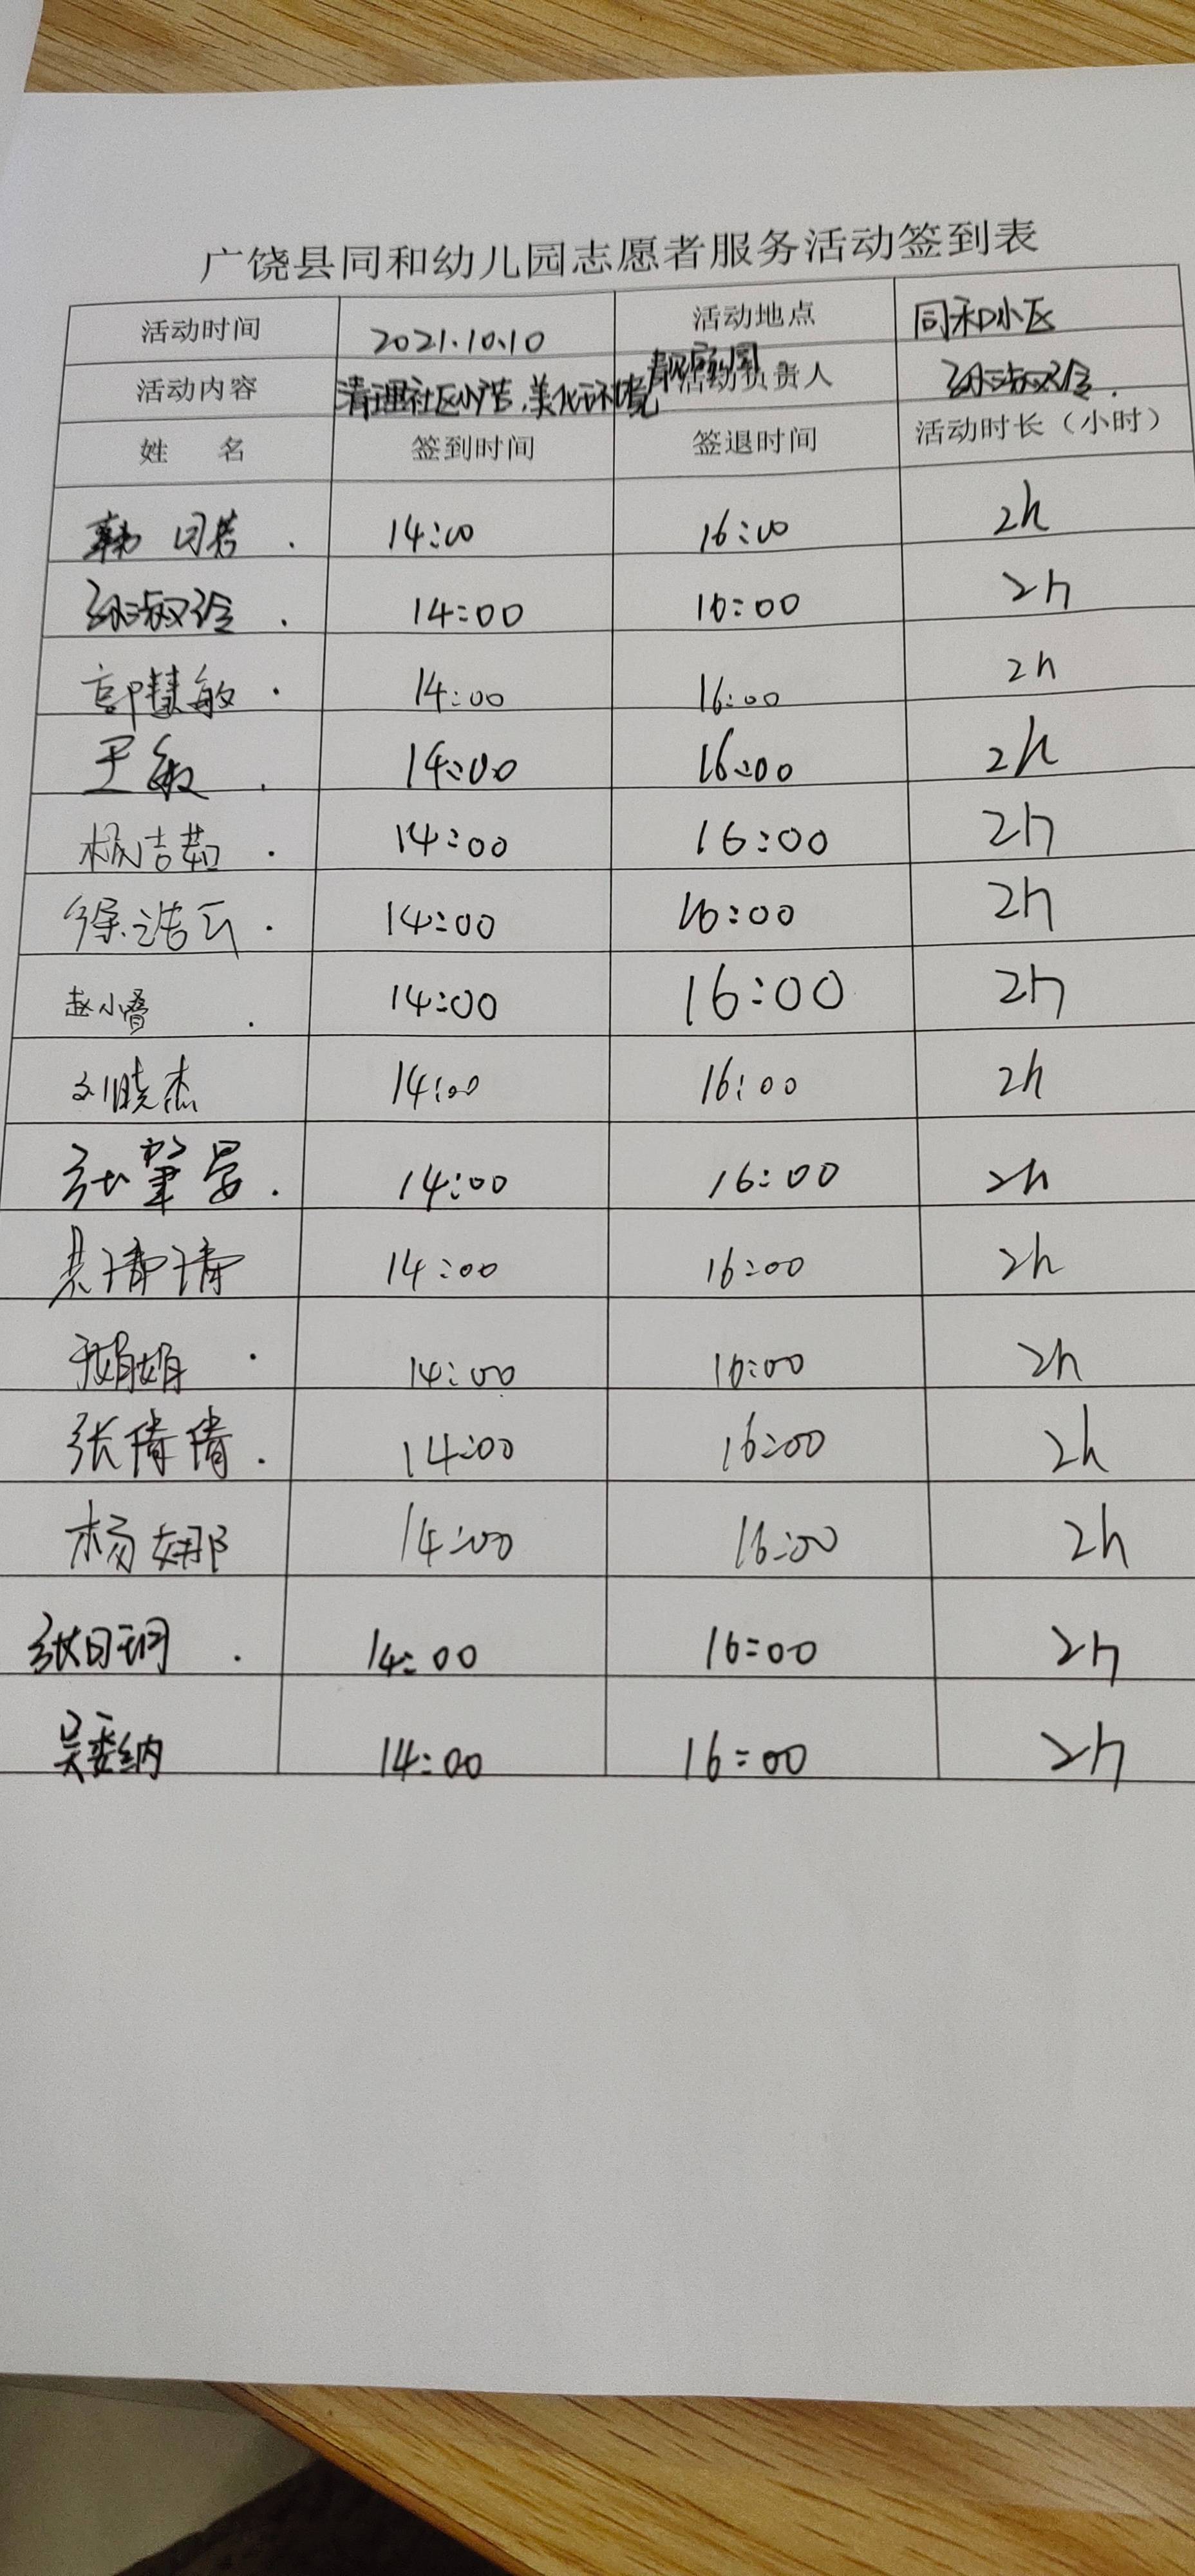 广饶县同和幼儿园志愿者服务活动签到表
活动时间 2021.10.10 活动地点 同和小区
活动内容 清理社区小广告,美化环境 活动负责人 孙淑玲
姓 名 签到时间 签退时间 活动时长（小时）
韩 14:00 16:00 2h
孙淑玲 14:00 16:00 2h
郭慧敏 14:00 16:00 2h
王敏 14:00 16:00 2h
杨吉茹 14:00 16:00 2h
徐浩云 14:00 16:00 2h
赵小 14:00 16:00 2h
刘晓杰 14:00 16:00 2h
张肇晏 14:00 16:00 2h
14:00 16:00 2h
14:00 16:00 2h
张倩倩 14:00 16:00 2h
杨娜 14:00 16:00 2h
张日玥 14:00 16:00 2h
吴委纳 14:00 16:00 2h